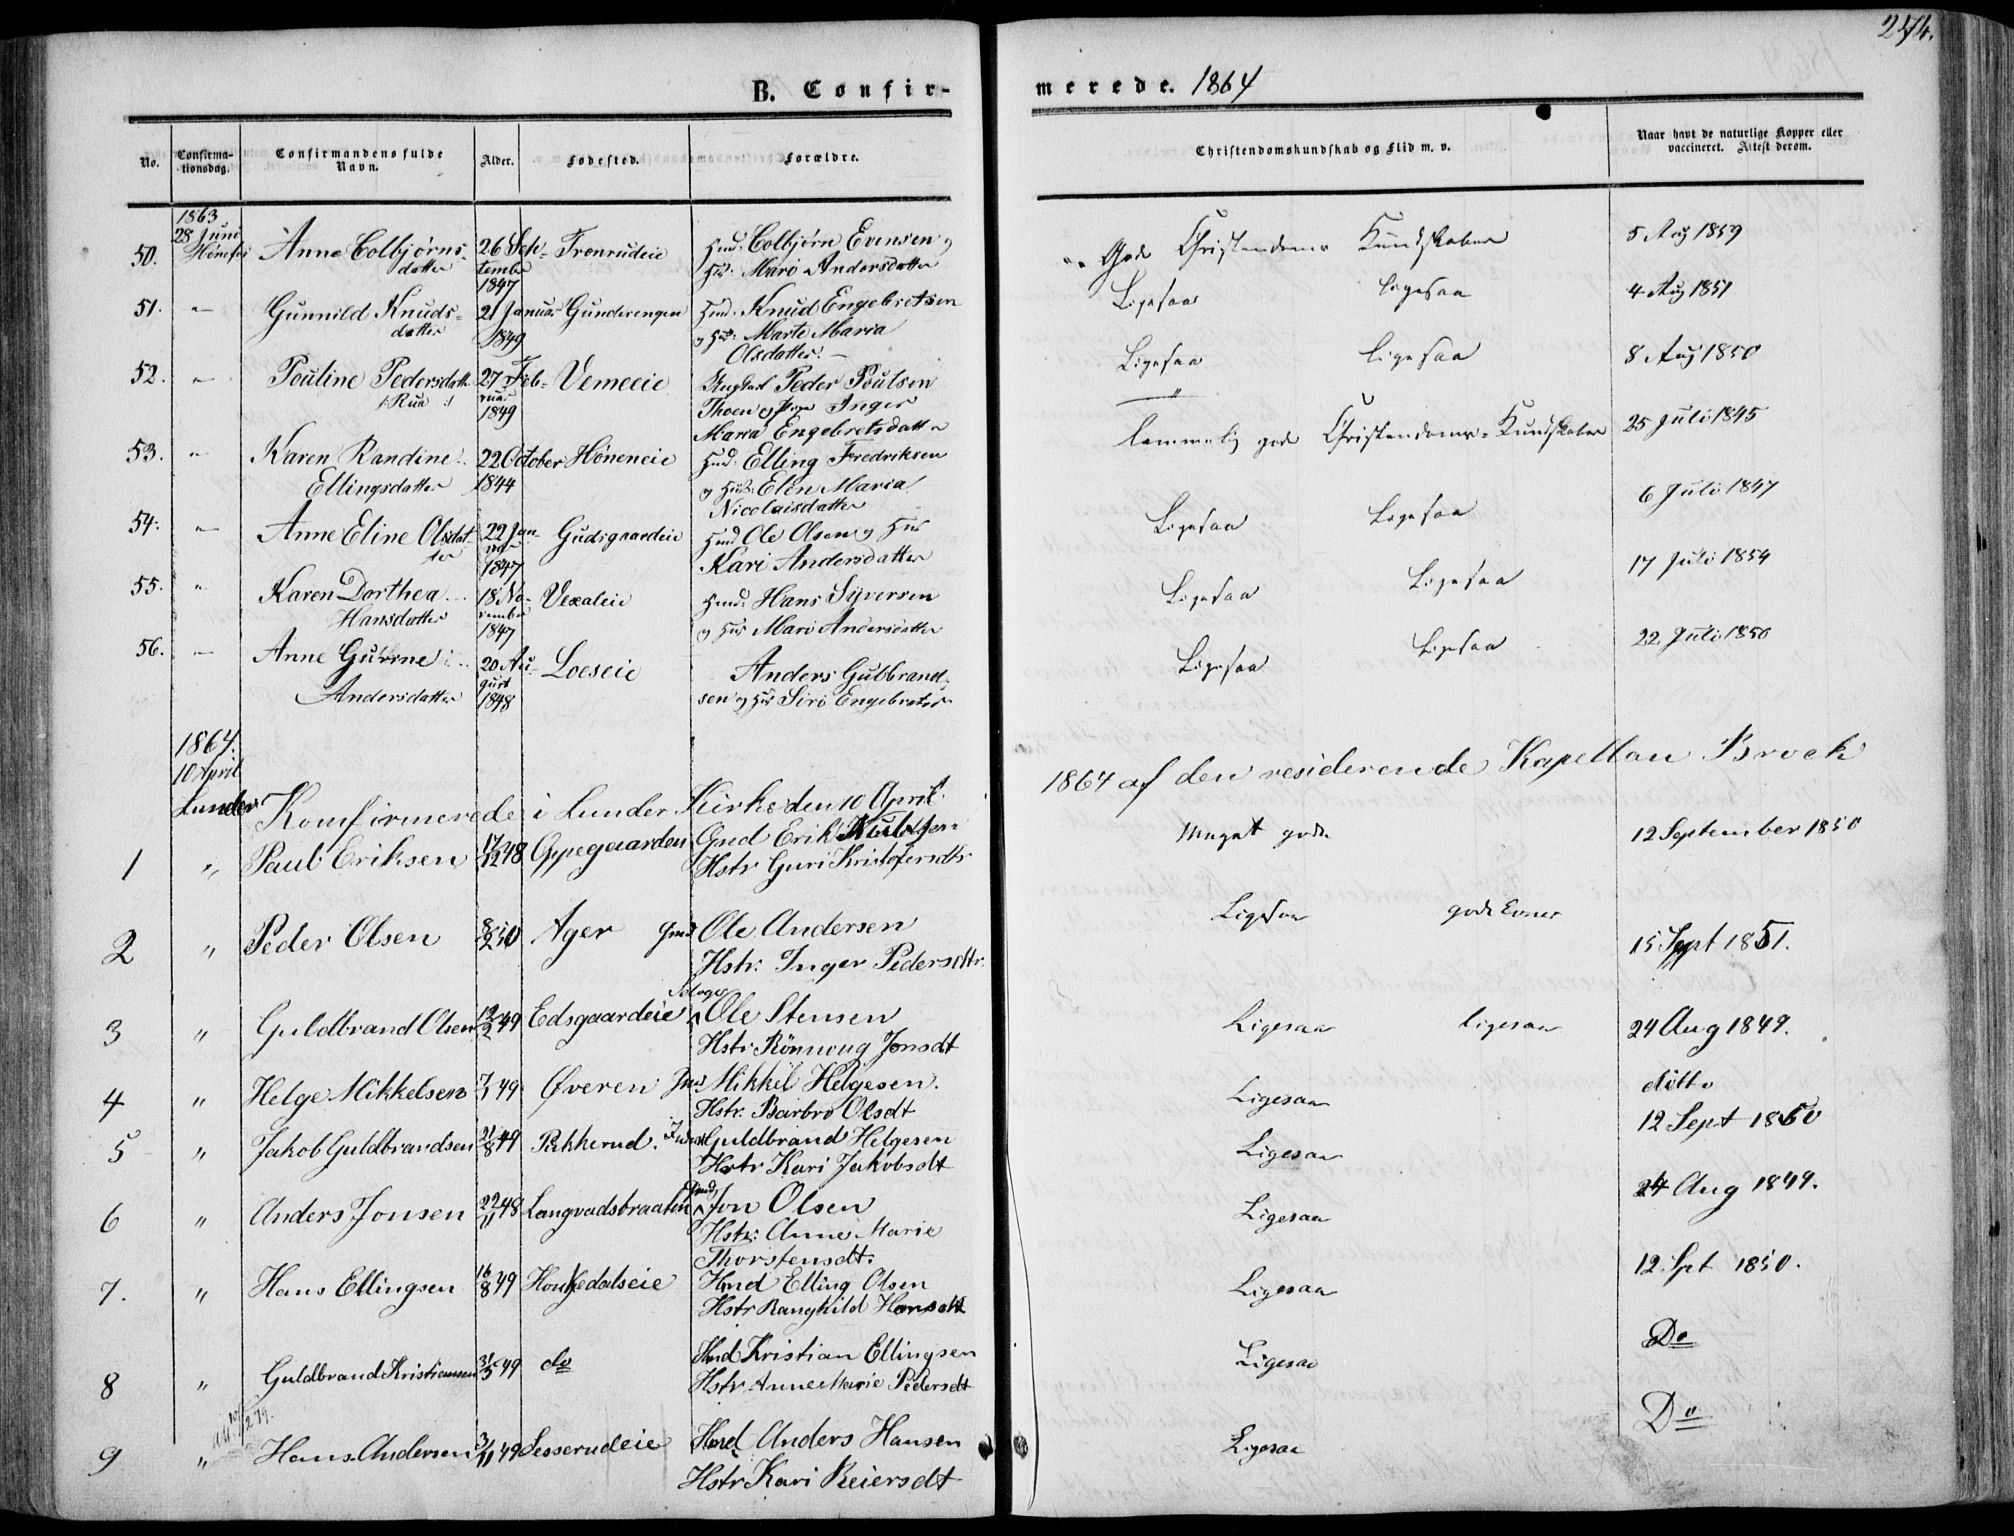 274.
B. Confirmerede. 1864
No.
Confirmationsdag.
Confirmandens fulde Navn.
Alder.
Fødested.
Forældre.
Christendomskundskab og Flid m. v.
Naar havt de naturlige Kopper eller vaccineret. Attest derom.
1863
28 Juni
Hønefos
50. Anne Colbjørns- 26 Sep- Tronrudeie Hmd: Colbjørn Evensen og Gode Christendoms Kundskaber 5 Aug 1859
datter tember Hu: Mari Andersdatter
1847
51. " Gunnild Knuds- 21 Januar Gunderengen Hmd: Knud Engebretsen Ligesaa ligesaa 4 Aug 1851
datter 1849 og Hu: Marte Maria
Olsdatter.
52. " Pouline Pedersdatt 27 Feb- Vemeeie Ungkarl Peder Poulsen Ligesaa ligesaa 8 Aug 1850
/: Rua :/ ruar Thoen og Pige Inger
1849 Maria Engebretsdatter
53. " Karen Randine 22 October Høneneie Hmd: Elling Fredriksen temmelig gode Christendoms-Kundskaber 25 Juli 1845
Ellingsdatter 1844 og Hu: Elen Maria
Nicolaisdatter
54. " Anne Eline Olsdat 22 Jan- Gudsgaardeie Hmd Ole Olsen og Hus Ligesaa Ligesaa 6 Juli 1847
ter nuar Kari Andersdatter
1847
55. " Karen Dorthea 18 No- Vexaleie Hmd: Hans Syversen Ligesaa Ligesaa 17 Juli 1854
Hansdatter vember og Hus Mari Andersdatter
1847
56. " Anne Gurine 20 Au- Loeseie Anders Gulbrand- Ligesaa Ligesaa 22 Juli 1850
Andersdatter gust sen og Hus Siri Engebretsd
1848
1864.
10 April
Lunder Konfirmerede i Lunder Kirke den 10 April 1864 af den residerende Kapellan Brock
1 " Paul Eriksen 17/12 48 Oppegaarden Gmd Erik Hustr Guri Kristofersdtr Meget gode 12 September 1850
2 " Peder Olsen 8/2 50 Ager Gmd Ole Andersen Ligesaa gode Evner 15 Sept 1851.
Hstr: Inger Pedersdtr.
3 " Guldbrand Olsen 12/2 49 Edsgaardeie Ole Stensen Ligesaa ligesaa 24 Aug 1849.
Hstr Rönnoug Jonsdt
4 " Helge Mikkelsen 7/1 49 Øveren Mikkil Helgesen. Ligesaa ditto
Hstr. Barbro Olsdt
5 " Jakob Guldbrandsen 21/8 49 Pukkerud. Guldbrand Helgesen Ligesaa 12 Sept 1850
Hstr Kari Jakobsdt
6 " Anders Jonsen 22/11 48 Langvadsbraaten Gmd Jon Olsen Ligesaa 24 Aug 1849.
Hstr: Anne Marie
Thorstensdt.
7. " Hans Ellingsen 16/8 49 Honkedalseie Hmd Elling Olsen Ligesaa 12 Spt 1850.
Hstr Ranghild Hansdt
8 " Guldbrand Kristiansen 31/3 49 do Hmd Kristian Ellingsen Ligesaa Do
Hstr Anne Marie Pedersdt
9 " Hans Andersen 3/11 49 Sesserudeie Hmd Anders Hansen Ligesaa Do
Hstr Kari Reiersdt